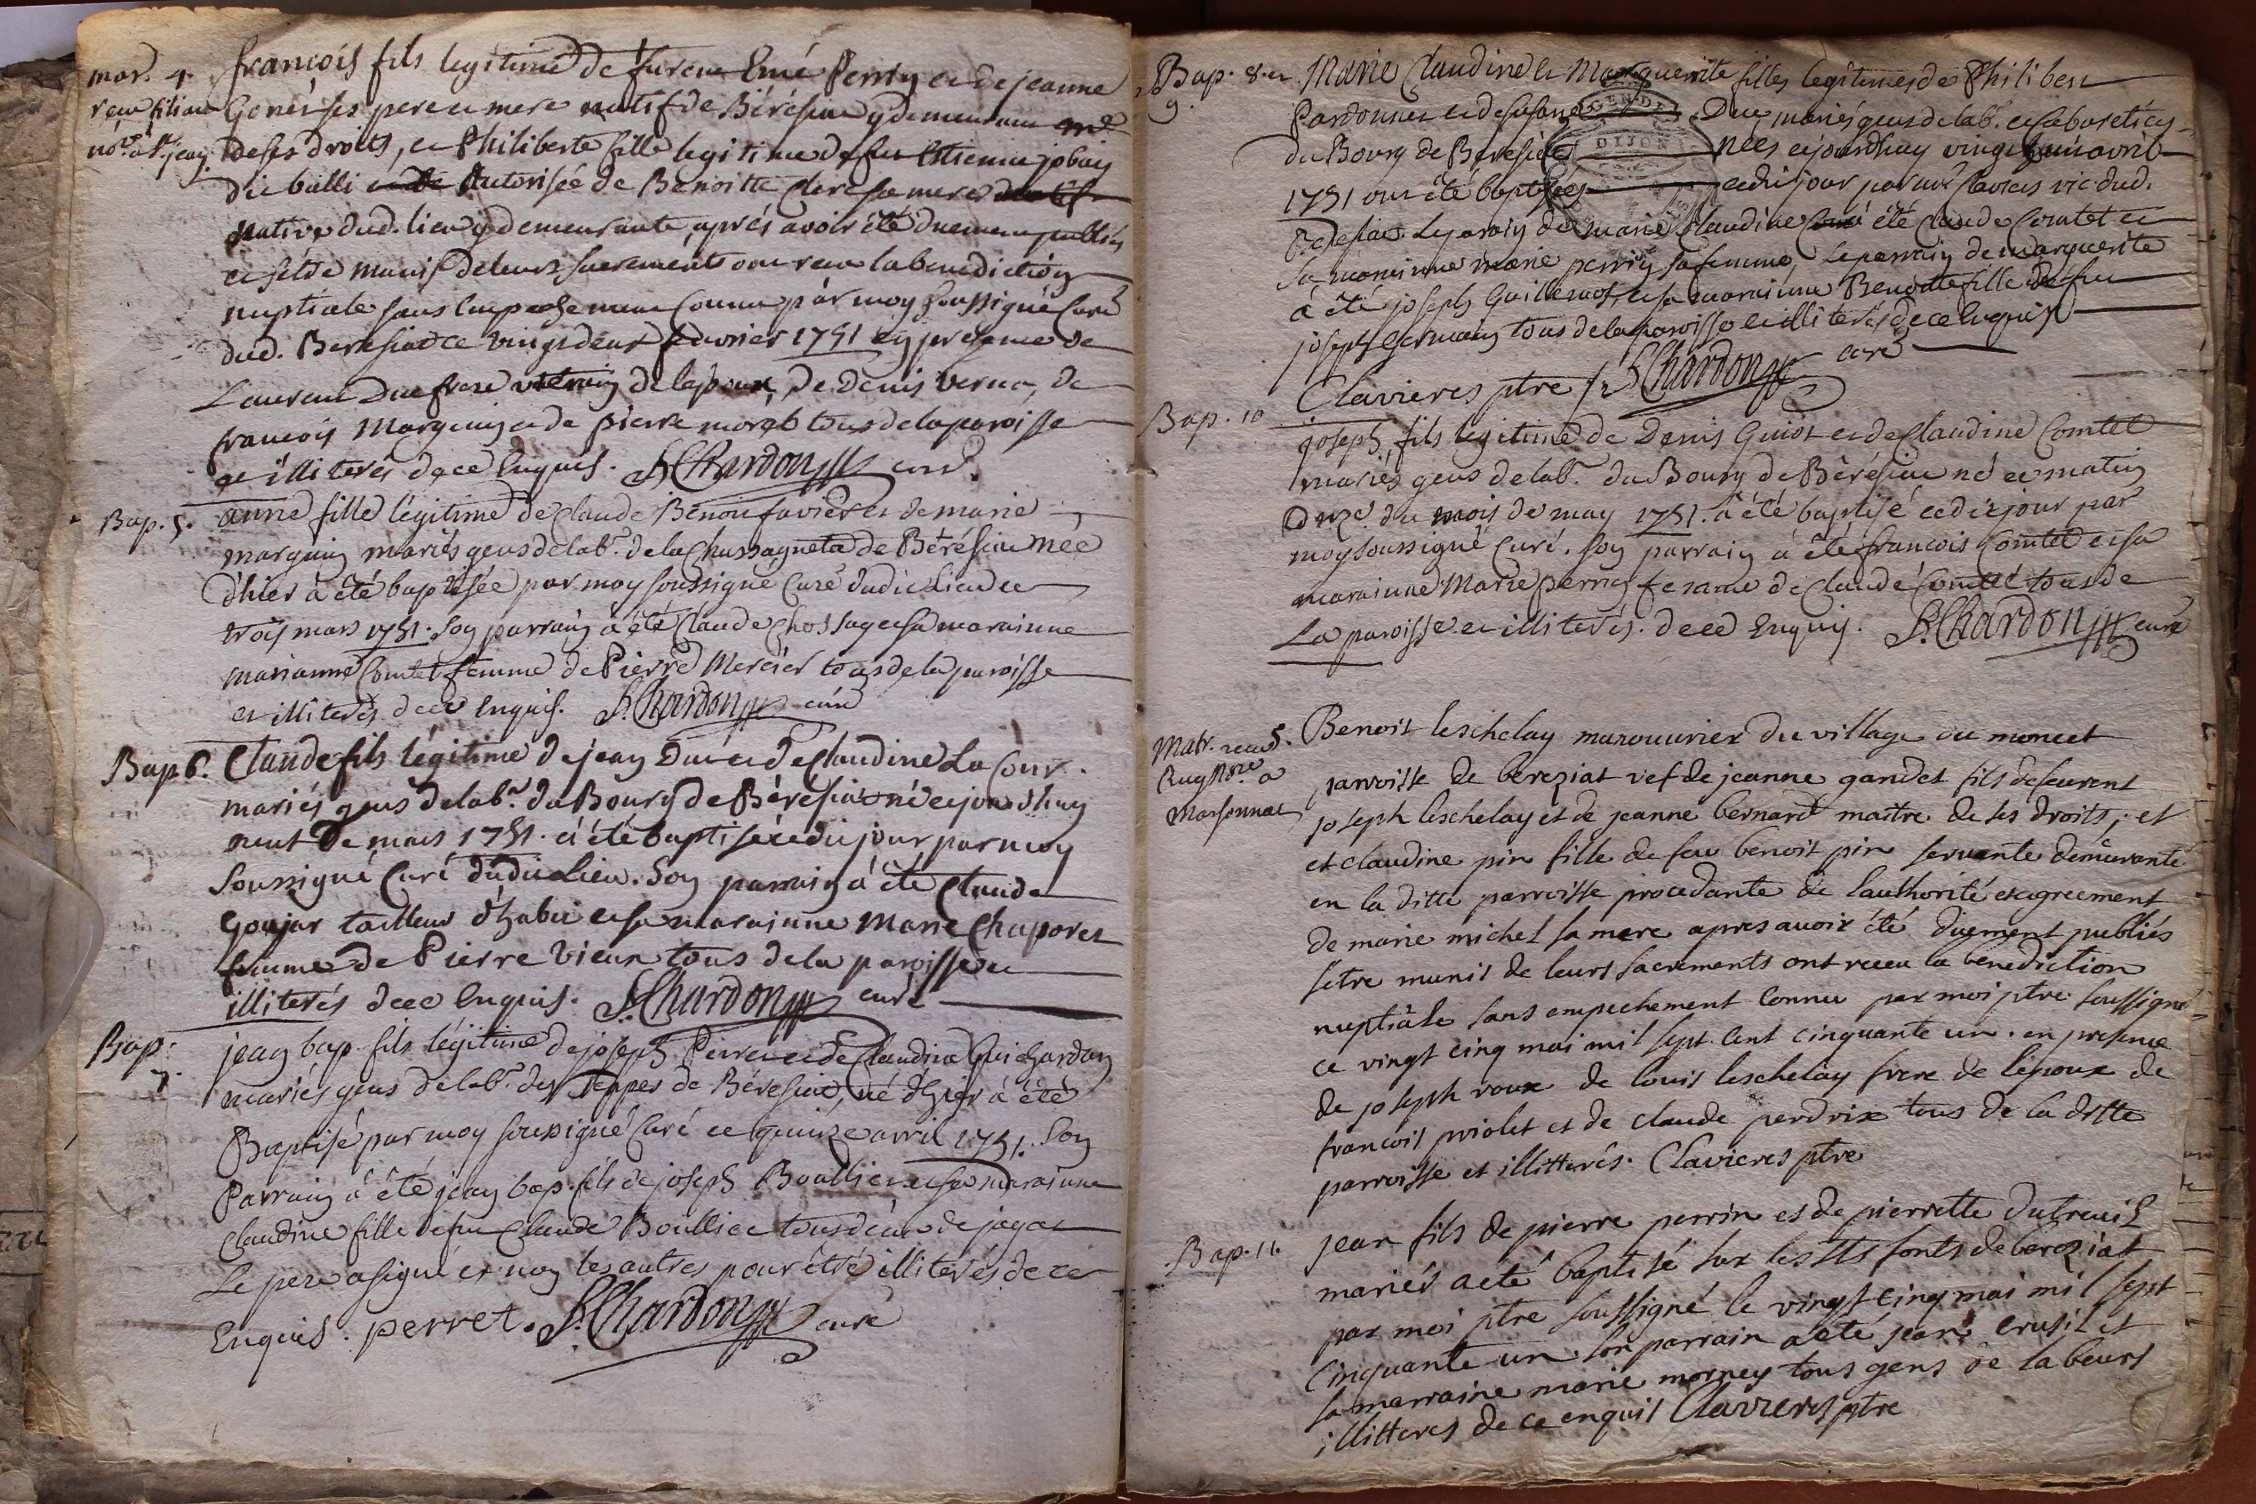 mar. 4.
françois fils legitime de furent Emé Perrin et de jeanne
reçu filiam
Genei ses pere et mere natif de Béréfiat y demeurant
nore. a St. jean
de ses droits, et Philiberte fille legitime de feu Etienne jobin
dit balli Autorisée de Benoitte Clerc sa mere
native dud. lieu y demeurante, aprés avoir été duement publiés
et s'etre munis de leurs sacrements ont recu la benediction
nuptiale sans Empechement Connu par moy soussigné Curé
dud. Berefiat ce vingt deux fevrier 1751 en presence de
Laurent Duc frere uterin de lepoux, de Denis verne, de
françois Marguin et de pierre morel tous de la paroisse
et illiterés de ce Enquis. S. Chardon curé
Bap. 5.
anne fille légitime de Claude Benon favier et de marie
marguin mariés gens de labr. de la Chassagneta de Béréfiat née
d'hier à été baptisée par moy soussigné Curé dudit lieu ce
trois mars 1751. Son parrain à été Claude Chossag et sa marainne
marianne Comtet femme de Pierre Mercier tous de la paroisse
et illiterés de ce Enquis. S. Chardon curé
Bap. 6.
Claude fils légitime de jean Duc et de Claudine La Cour
mariés gens de labr. du Bourg de Béréfiat né ce jourdhuy
neuf de mars 1751. à été baptisé cedit jour par moy
soussigné Curé dudit Lieu. Son parrain à été Claude
Goujar tailleur d'habit et sa marainne Marie Chaporet
femme de Pierre Vieux tous de la paroisse et
illiterés de ce Enquis. S. Chardon curé
Bap. 7.
jean bap. fils légitime de joseph Perret et de Claudine Guichardon
mariés gens de labr. des Teppes de Béréfiat, né d'hier à été
Baptisé par moy soussigné Curé ce quinze avril 1751. Son
Parrain à été jean bap. fils de joseph Boullier et sa marainne
Claudine fille de feu Claude Boullier tous deux de jayat
Le pere a signé et non les autres pour être illiterés de ce
Enquis. perret. S. Chardon curé
Bap. 8. et 9.
Marie Claudine et Marguerite filles legitimes de Philibert
Pardonnet et de Duc mariés gens de lab. et Cabaretiers
du Bourg de Berefiat nées ce jourdhuy vingt avril
DIJON
1751 ont été baptisées cedit jour par mr Clavieres vic. dud.
Berefiat. Le parain de marie Claudine à été Claude Comtet et
sa marainne marie perrin sa femme, le parrain de marguerite
à été joseph Guillemot, et sa marainne Benoitte fille de feu
joseph Germain tous de la paroisse et illiterés de ce Enquis
Clavieres ptre S. Chardon curé
Bap. 10
joseph, fils légitime de Denis Guiot et de Claudine Comtet
mariés gens de labr. du Bourg de Béréfiat né ce matin
onze du mois de may 1751. à été baptisé cedit jour par
moy soussigné Curé. Son parrain à été françois Comtet et sa
marainne Marie perrin femme de Claude Comtet tous de
La paroisse et illiterés. de ce Enquis. S. Chardon curé
Matr. 5.
Benoit leschelay manouvrier du village du moncet
parroisse de bereziat vef de jeanne gandet fils defeurent
Marsonnat
joseph leschelay et de jeanne bernard maitre de ses droits, et
et claudine pin fille de feu benoit pin servante demeurante
en la ditte parroisse procedante de lauthorité et agreement
de marie michel sa mere apres avoir été duement publiés
setre munis de leurs sacrements ont receu la benediction
nuptiale sans empechement connu par moi ptre soussigné
ce vingt cinq mai mil sept cent cinquante un. en presence
de joseph roux de louis leschelay frere de lepoux de
francois priolet et de claude perdrix tous de la ditte
parroisse et illitterés. Clavieres ptre
Bap. 11.
jean fils de pierre perrin et de pierrette dutreuil
mariés a été baptisé sur les sts fonts de bereziat
par moi ptre soussigné le vingt cinq mai mil sept
cinquante un. son parrain a été jean crusil et
sa marraine marie morney tous gens de labeurs
illitteres de ce enquis Clavieres ptre